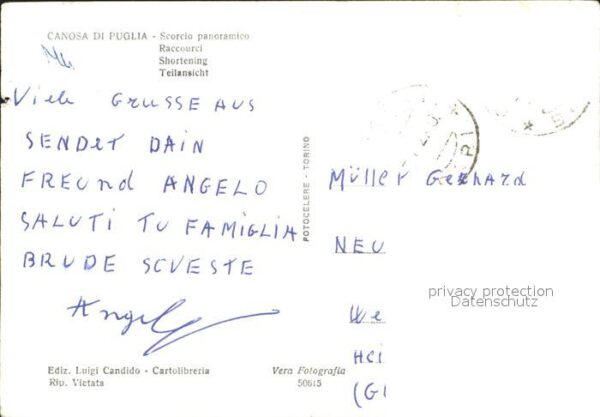 CANOSA DI PUGLIA - Scorcio panoramico
Raccourci
Shortening
Teilansicht
Viele GRUSSE AUS
SENDET DAIN
FREUND ANGELO
SALUTI TU FAMIGLIA
BRUDE SCVESTE
Angelo
Ediz. Luigi Candido - Cartolibreria
Rip. Vietata
FOTOCELERE - TORINO
Vera Fotografia
50615
Müller Gerhard
NEU
privacy protection
Datenschutz
We
Hei
(GI